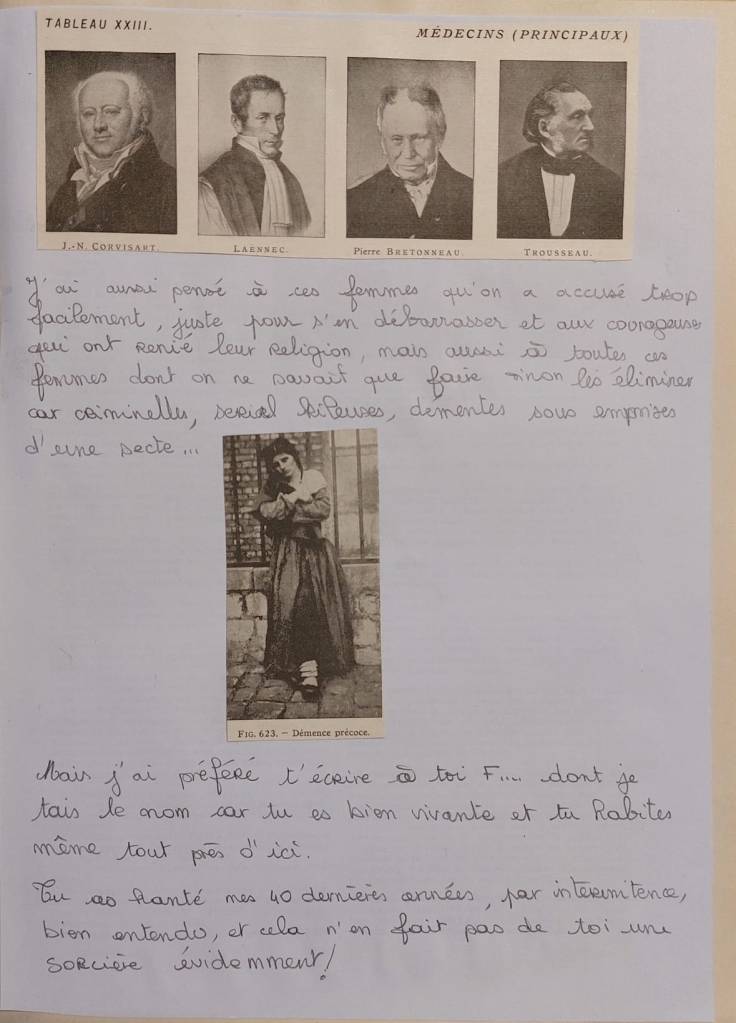 TABLEAU XXIII.
MÉDECINS (PRINCIPAUX)
J.-N. CORVISART. LAËNNEC. Pierre BRETONNEAU. TROUSSEAU.
J'ai aussi pensé à ces femmes qu'on a accusé trop
facilement, juste pour s'en débarrasser et aux courageuses
qui ont renié leur religion, mais aussi à toutes ces
femmes dont on ne savait que faire sinon les éliminer
car criminelles, serial kileuses, démentes sous emprises
d'une secte...
FIG. 623. — Démence précoce.
Mais j'ai préféré t'écrire à toi F.... dont je
tais le nom car tu es bien vivante et tu habites
même tout près d'ici.
Tu as hanté mes 40 dernières années, par intermitence,
bien entendu, et cela n'en fait pas de toi une
sorcière évidemment!